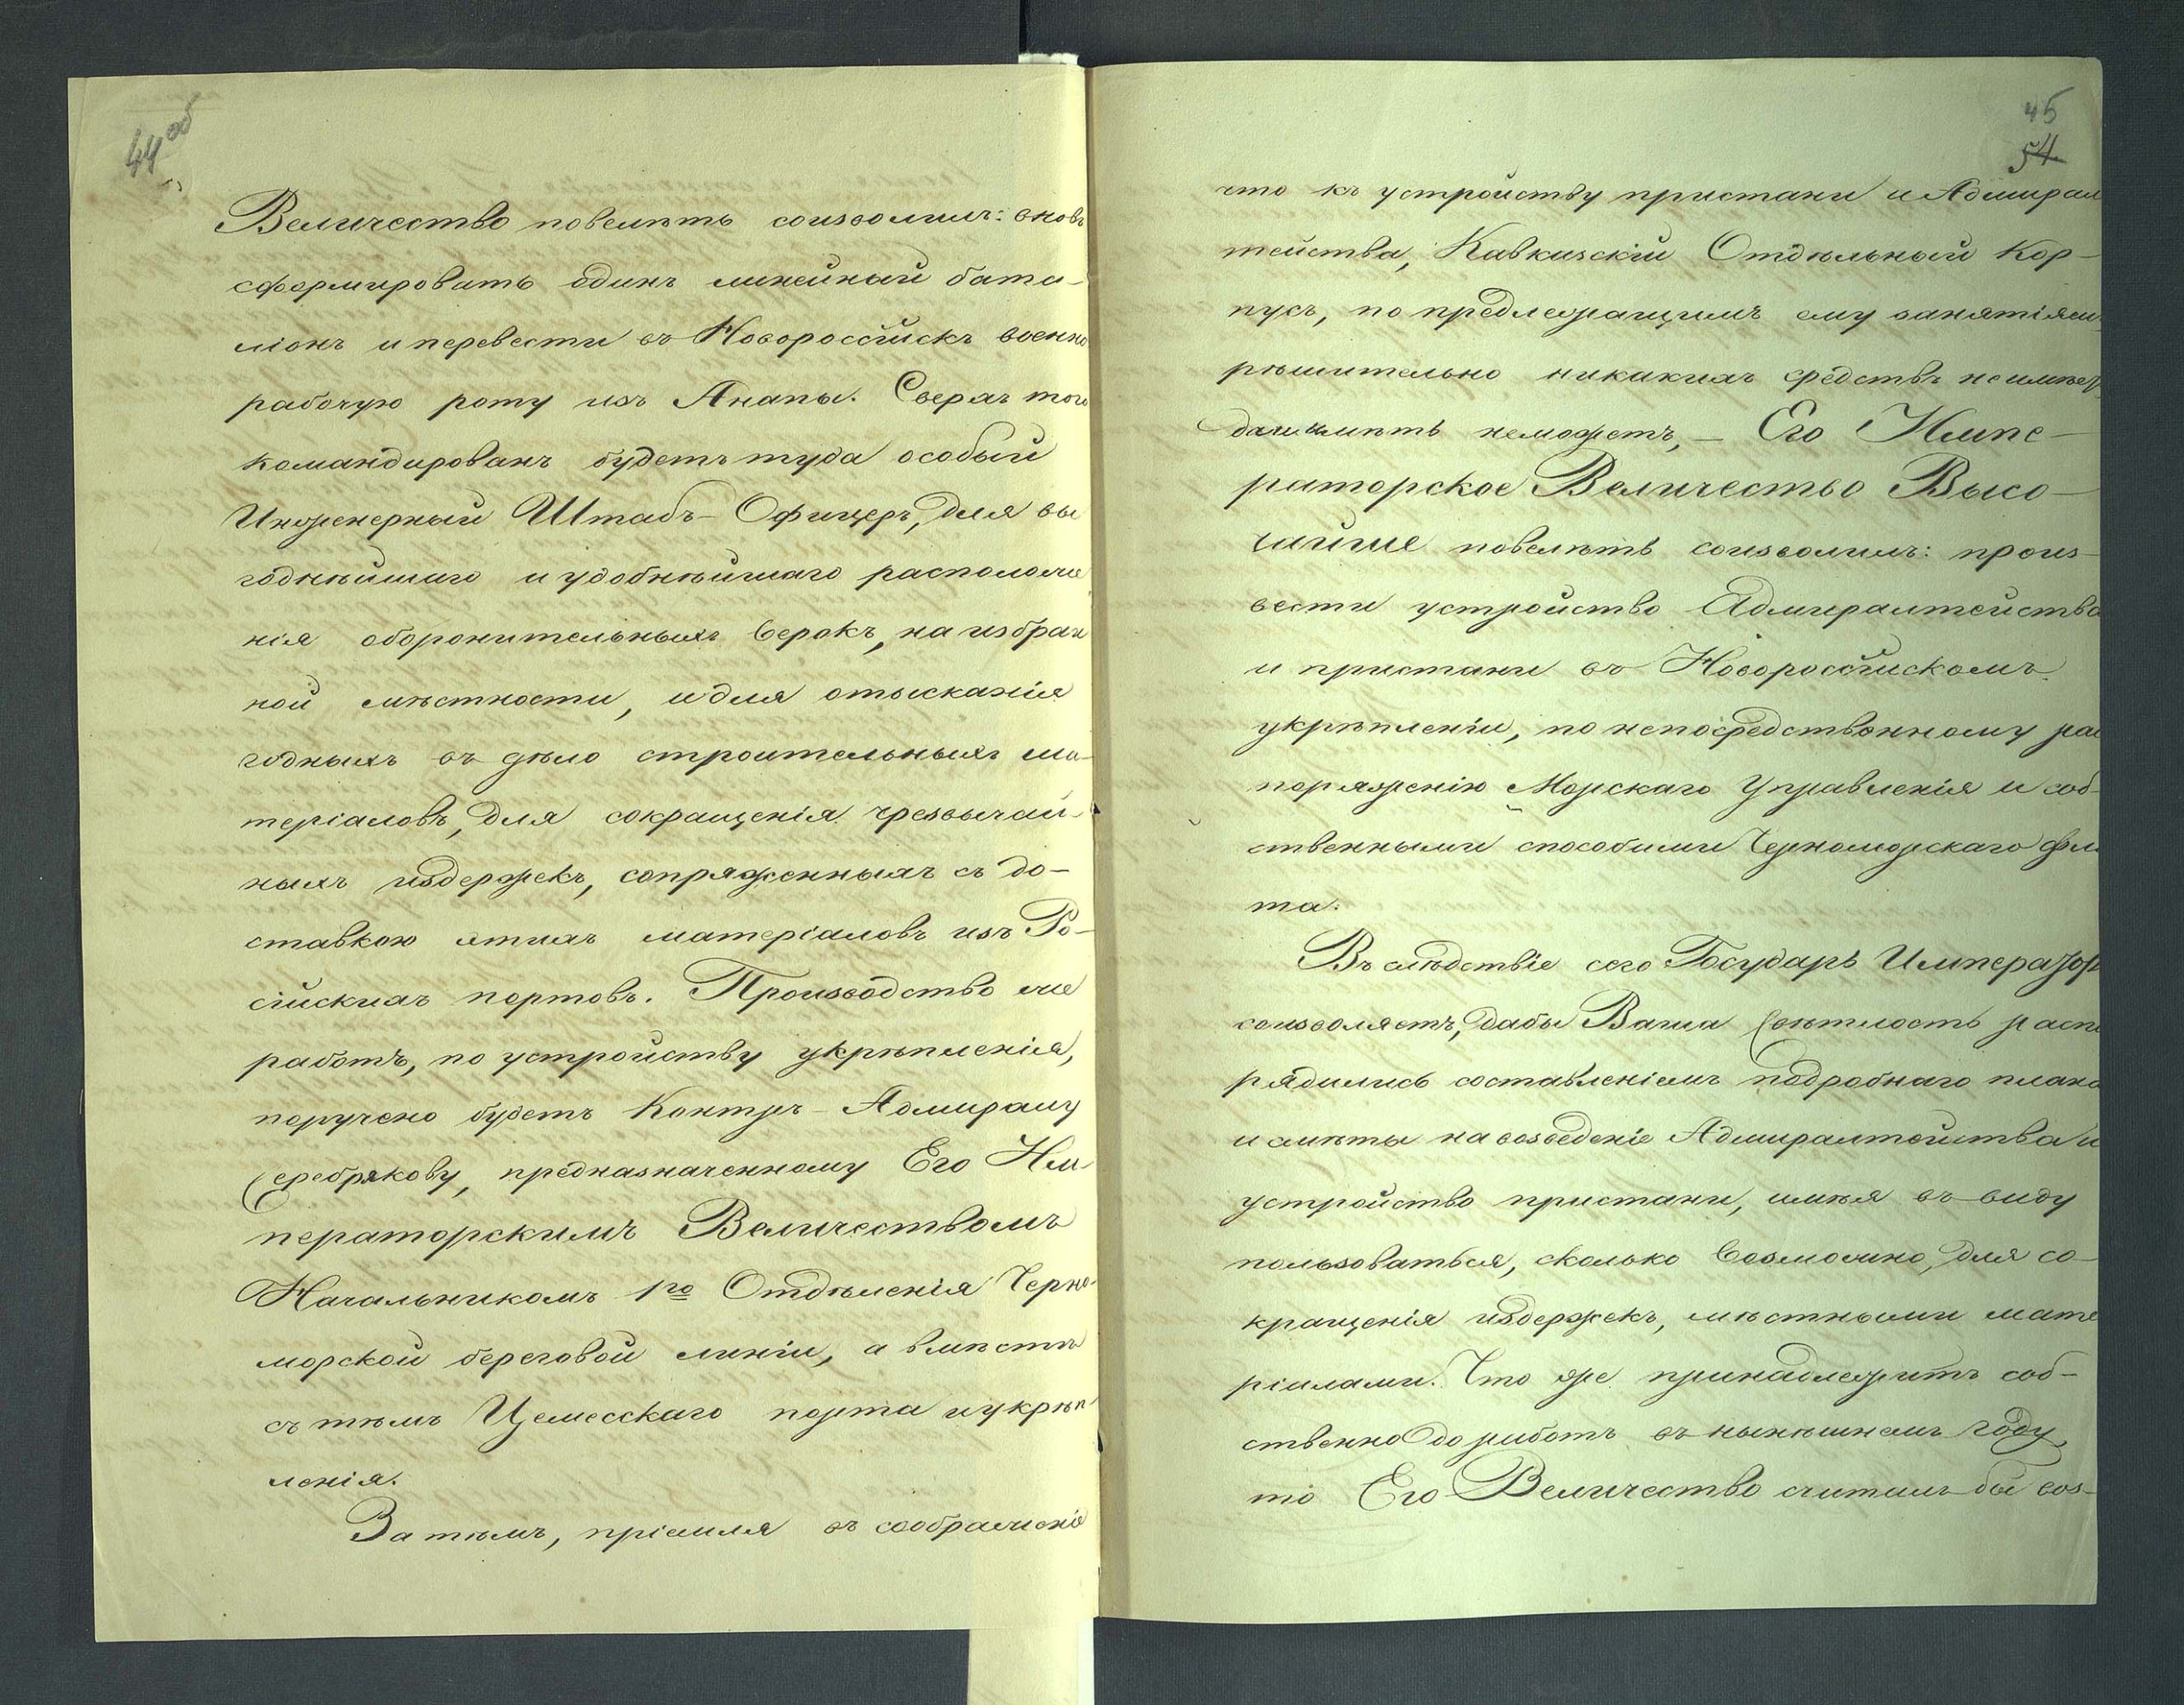 44 об
Величество повелѣть соизволилъ: вновь
сформировать одинъ линейный бата-
ліонъ и перевести въ Новороссійскъ военно
рабочую роту изъ Анапы. Сверхъ того
командированъ будетъ туда особый
Инженерный Штабъ-Офицеръ, для вы
годнѣйшаго и удобнѣйшаго расположе
нія оборонительныхъ верокъ, на избран
ной мѣстности, и для отысканія
годныхъ въ дѣло строительныхъ ма-
теріаловъ, для сокращенія чрезвычай-
ныхъ издержекъ, сопряженныхъ съ до-
ставкою этихъ матеріаловъ изъ Ро-
сійскихъ портовъ. Производство же
работъ, по устройству укрѣпленія,
поручено будетъ Контръ-Адмиралу
Серебрякову, предназначенному Его Им-
ператорскимъ Величествомъ
Начальникомъ 1го Отдѣленія Черно-
морской береговой линіи, а вмѣстѣ
съ тѣмъ Цемесскаго порта и укрѣп-
ленія.
За тѣмъ, пріемля въ соображеніе
45
54
что къ устройству пристани и Адмирал
тейства, Кавказскій Отдѣльный Кор-
пусъ, по предлежащимъ ему занятіям
рѣшительно никакихъ средствъ не имѣет
да и имѣть неможетъ, – Его Импе-
раторское Величество Высо-
чайше повелѣть соизволилъ: произ-
вести устройство Адмиралтейства
и пристани въ Новороссійскомъ
укрѣпленіи, по непосредственному рас
поряженію Морскаго Управленія и соб-
ственными способами Черноморскаго фло
та.
Въ слѣдствіе сего Государь Императоръ
соизволяетъ, дабы Ваша Свѣтлость распо
рядились составленіемъ подробнаго плана
и смѣты на возведеніе Адмиралтейства и
устройство пристани, имѣя въ виду
пользоваться, сколько возможно, для со-
кращенія издержекъ, мѣстными мате
ріалами. Что же принадлежитъ соб-
ственно до работъ въ нынѣшнемъ году,
то Его Величество считалъ бы воз-